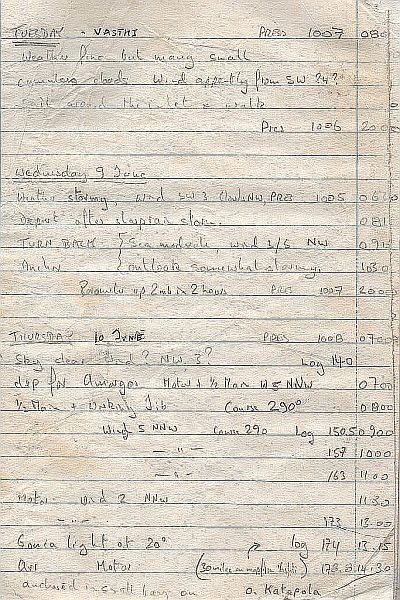 TUESDAY - VASTHI PRES 1007 080
Weather fine but many small
cumulous clouds Wind apprently from SW 24?
sail around the islet & walk
Pres 1006 2000
Wednesday 9 June
stormy, wind SW 3 PRES 1005 060
Depart after storm. 081
TURN BACK { Sea moderate wind 3/5 NW 0915
Anchor { outlook somewhat stormy. 1630
Barometer up 2 mb in 2 hours PRES 1007 2000
THURSDAY 10 JUNE PRES 1008 0700
Sky clear wind? NW 3? Log 140
dep for Amorgos Motor + ½ Main W5 NNW 0700
½ Main + Working Jib Course 290° 0800
Wind 5 NNW Course 290 Log 150.5 0900
— " — 157 1000
— " — 163 1100
Motor - Wind 2 NNW 1130
— " — 173 13.00
light at 20° log 174 13.15
Arr Motor (30 miles on map 178.2 14.30
anchored in small bay on O. Katapola